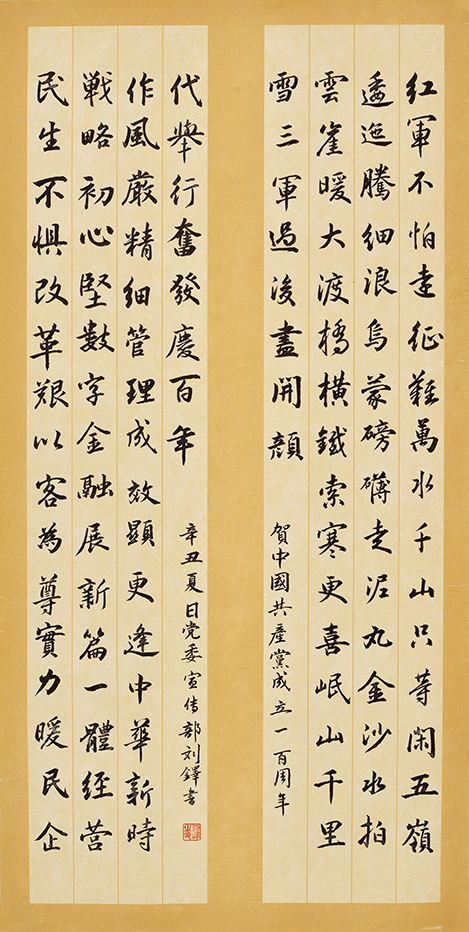 红軍不怕遠征難萬水千山只等闲五嶺
逶迤騰細浪烏蒙磅礴走泥丸金沙水拍
雲崖暖大渡橋橫鐵索寒更喜岷山千里
雪三軍過後盡開顔
賀中國共產黨成立一百周年
民生不惧改革艱以客為尊實力暖民企
戦略初心堅數字金融展新篇一體經营
作風嚴精細管理成效顯更逢中華新時
代舉行奮發慶百年
辛丑夏日党委宣传部刘鐸書